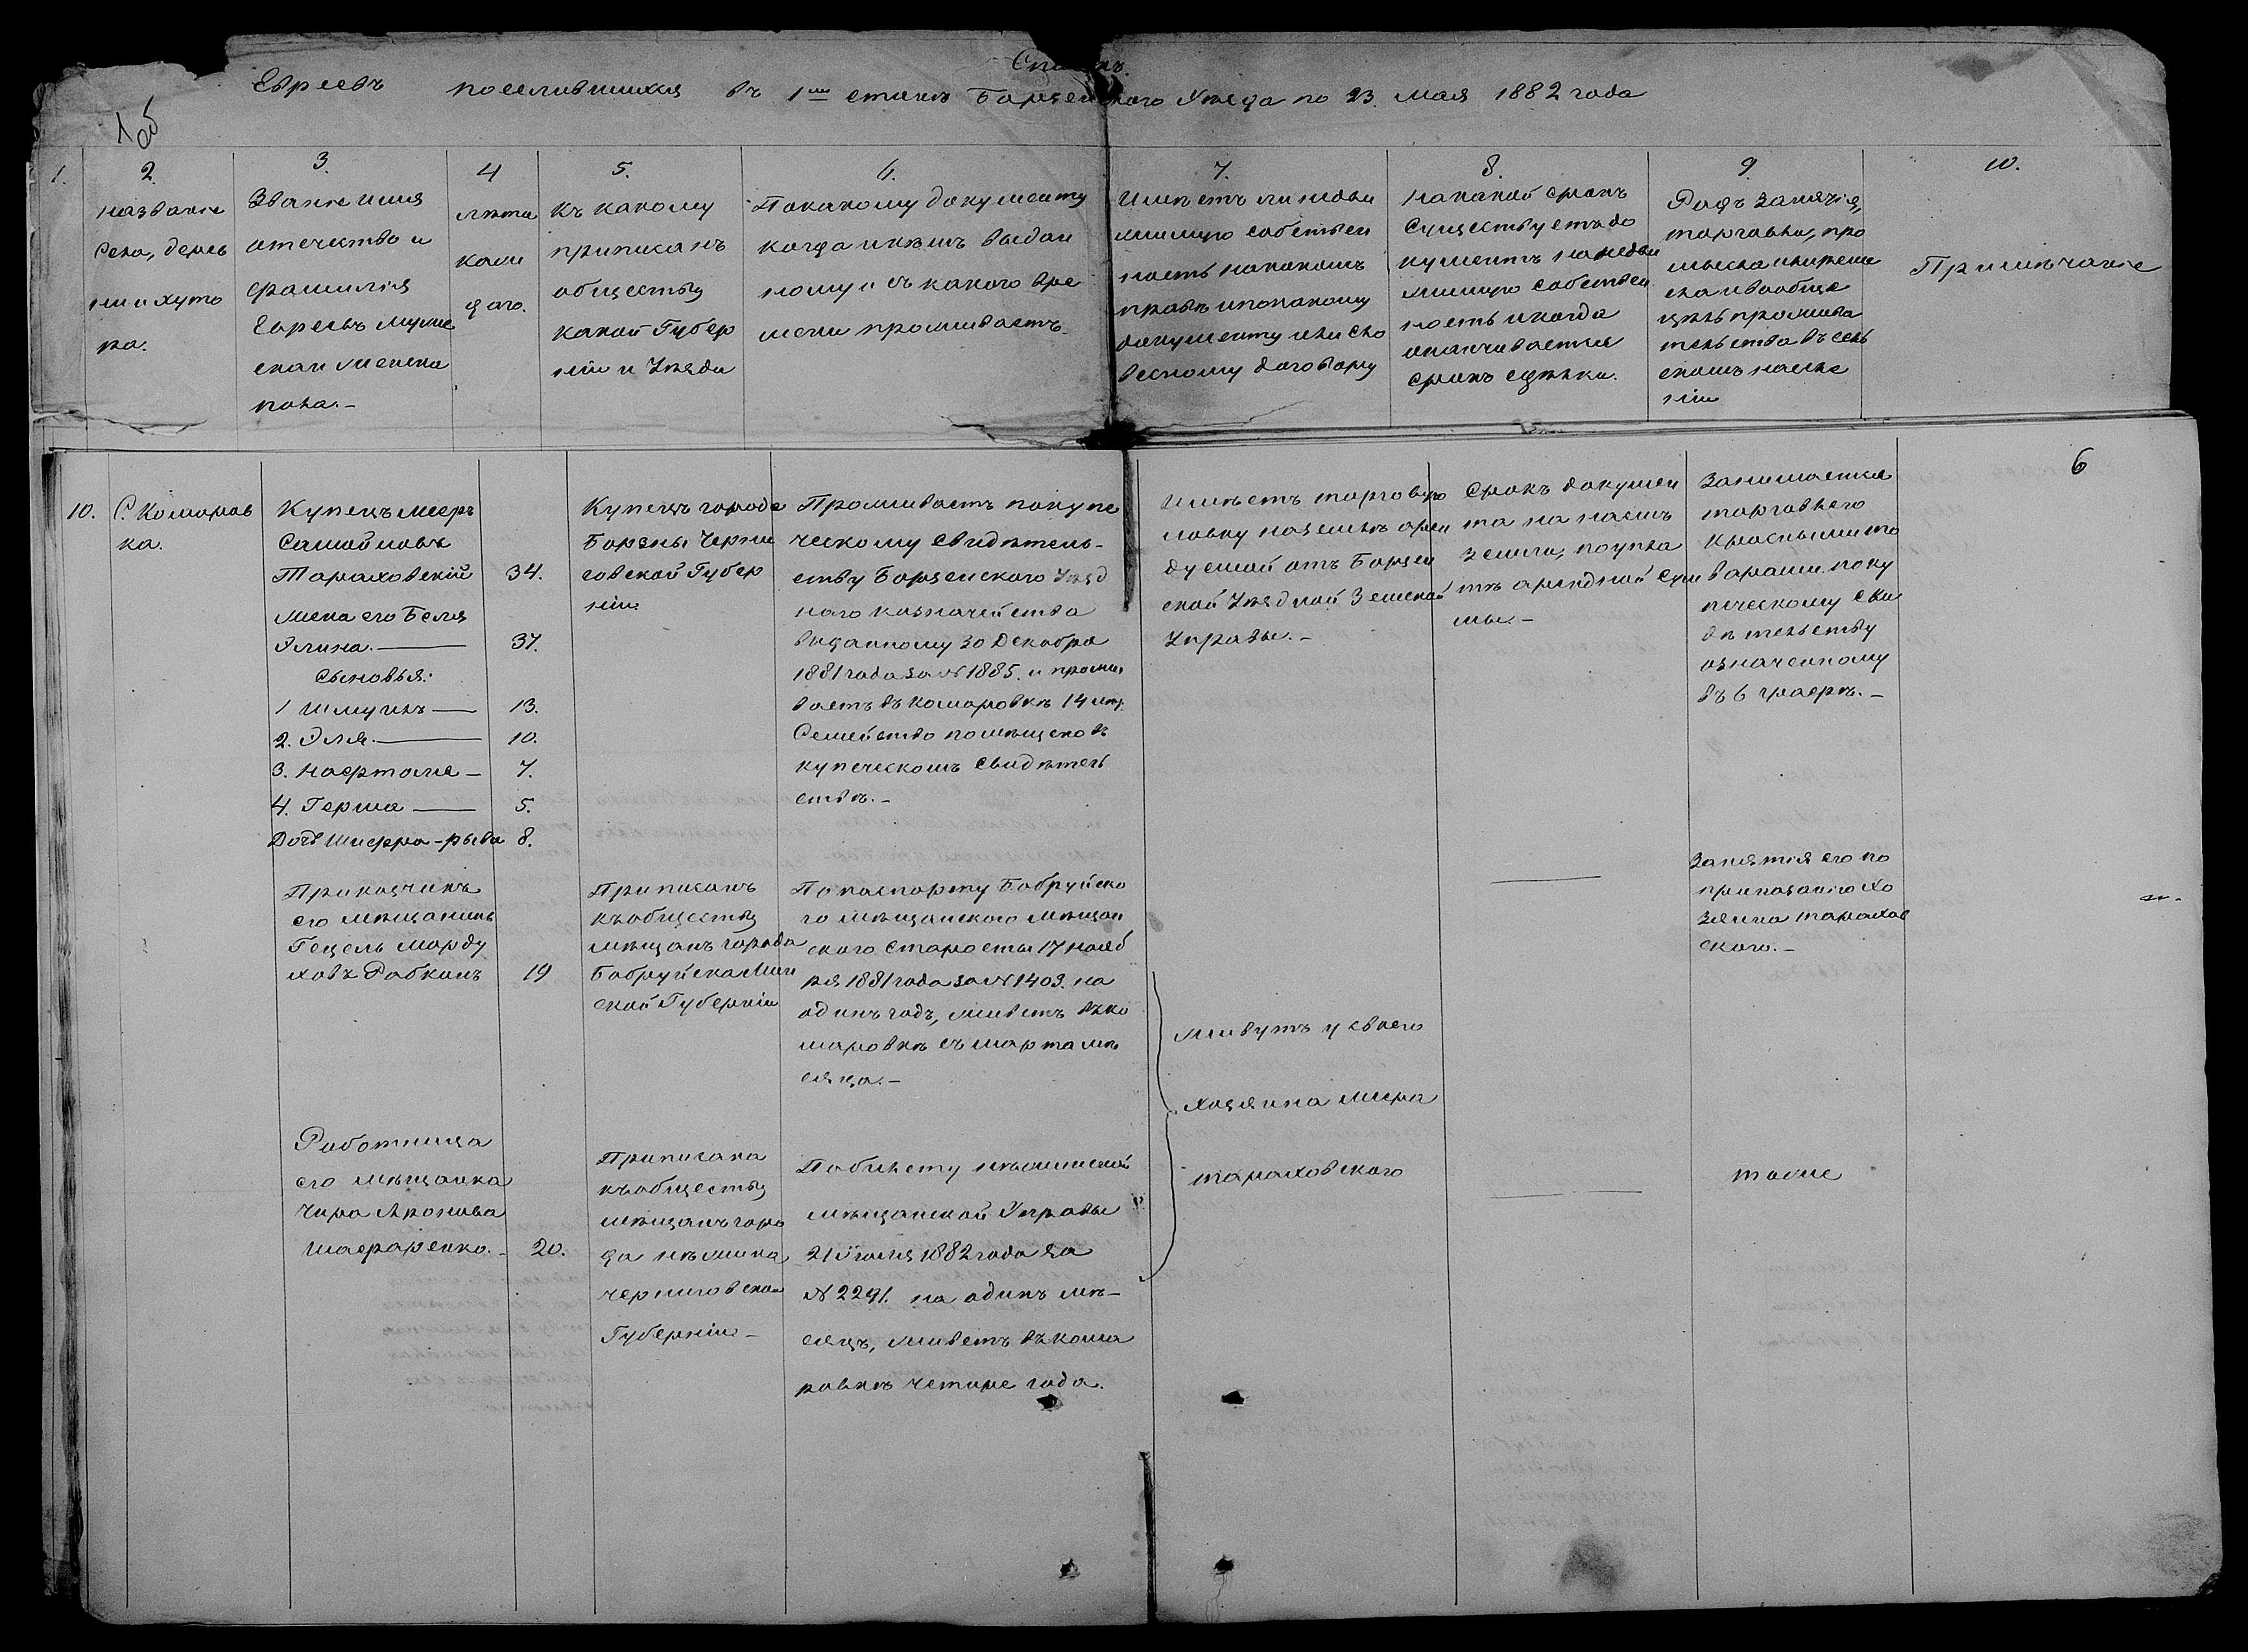 Списокъ
Евреевъ поселившихся въ 1мъ станѣ Борзенского Уѣзда по 23. мая 1882 года
1об
1.
2.
Названіе
села, дерев
ни и хуто
ра.
3.
Званіе имя
отечество и
фамилія
Евреевъ муже
ска и женска
пола.-
4
лѣта
кажд
даго.
5.
Къ какому
приписанъ
обществу
какой Губер
ніи и Уѣзда
6.
По какому документу
когда и кѣмъ выдан
ному и съ какого вре
мени проживаетъ.
7.
Имѣетъ ли недви
жимую собствен
ность на какомъ
правѣ и по какому
документу или сло
весному договору
8.
На какой срокъ
существуетъ до
кументъ на недви
жимую собствен
ность и когда
оканчивается
срокъ сдѣлки.
9.
Родъ занятія,
торговли, про
мысла и
и вообще
цѣль прожива
тельства въ сель
скомъ насе
ніи
10.
Примѣчаніе
6
10.
С. Комаров
ка.
Купецъ Мееръ
Самойловъ
Тараховскій 34.
жена его Бейля
Элина. 37.
Сыновья:
1 Шмуилъ 13.
2. Эля. 10.
3. Нафтоле 7.
4. Герша 5.
Дочь Шифра-рыва 8.
Купецъ города
Борзны Черни
говской Губер
ніи
Проживаетъ по купе
ческому свидѣтель-
ству Борзенского Уѣзд
ного казначейства
выданному 30 Декабря
1881 года за № 1885. и прожи
ваетъ въ Комаровкѣ 14 лѣтъ.
Семейство помѣщено въ
купеческомъ свидѣтель
ствѣ.-
Имѣетъ торговую
лавку на землѣ арен
дуемой отъ Борзен
ской Уѣздной Земской
Управы.-
Срокъ докумен
та на наемъ
земли, по упла
тѣ арендной сум
мы.-
Занимается
торговлею
красными то
варами по ку
печескому сви
дѣтельству
означенному
въ 6 графѣ.-
Приказчикъ
его мѣщанинъ
Гецель Морду
ховъ Рабкинъ 19
Приписанъ
къ обществу
мѣщанъ города
Бобруйска Мин
ской Губерніи
По паспорту Бобруйско
го мѣщанского мѣщан
ского старосты 17 нояб
ря 1881 года за № 1403. на
одинъ годъ, живетъ въ Ко
маровкѣ съ марта мѣ
сяца.-
Живутъ у своего
хозяина Меера
Тараховского
Занятія его по
приказанію хо
зяина Тарахов
ского.-
Работница
его мѣщанка
Чира Аронова
Шафаренко.- 20.
Приписана
къ обществу
мѣщанъ горо
да Нѣжина
Черниговской
Губерніи-
По билету Нѣжинской
мѣщанской Управы
21 Іюня 1882 года за
№ 2291. на одинъ мѣ-
сяцъ, живетъ въ Кома
ровкѣ четыре года.
тоже